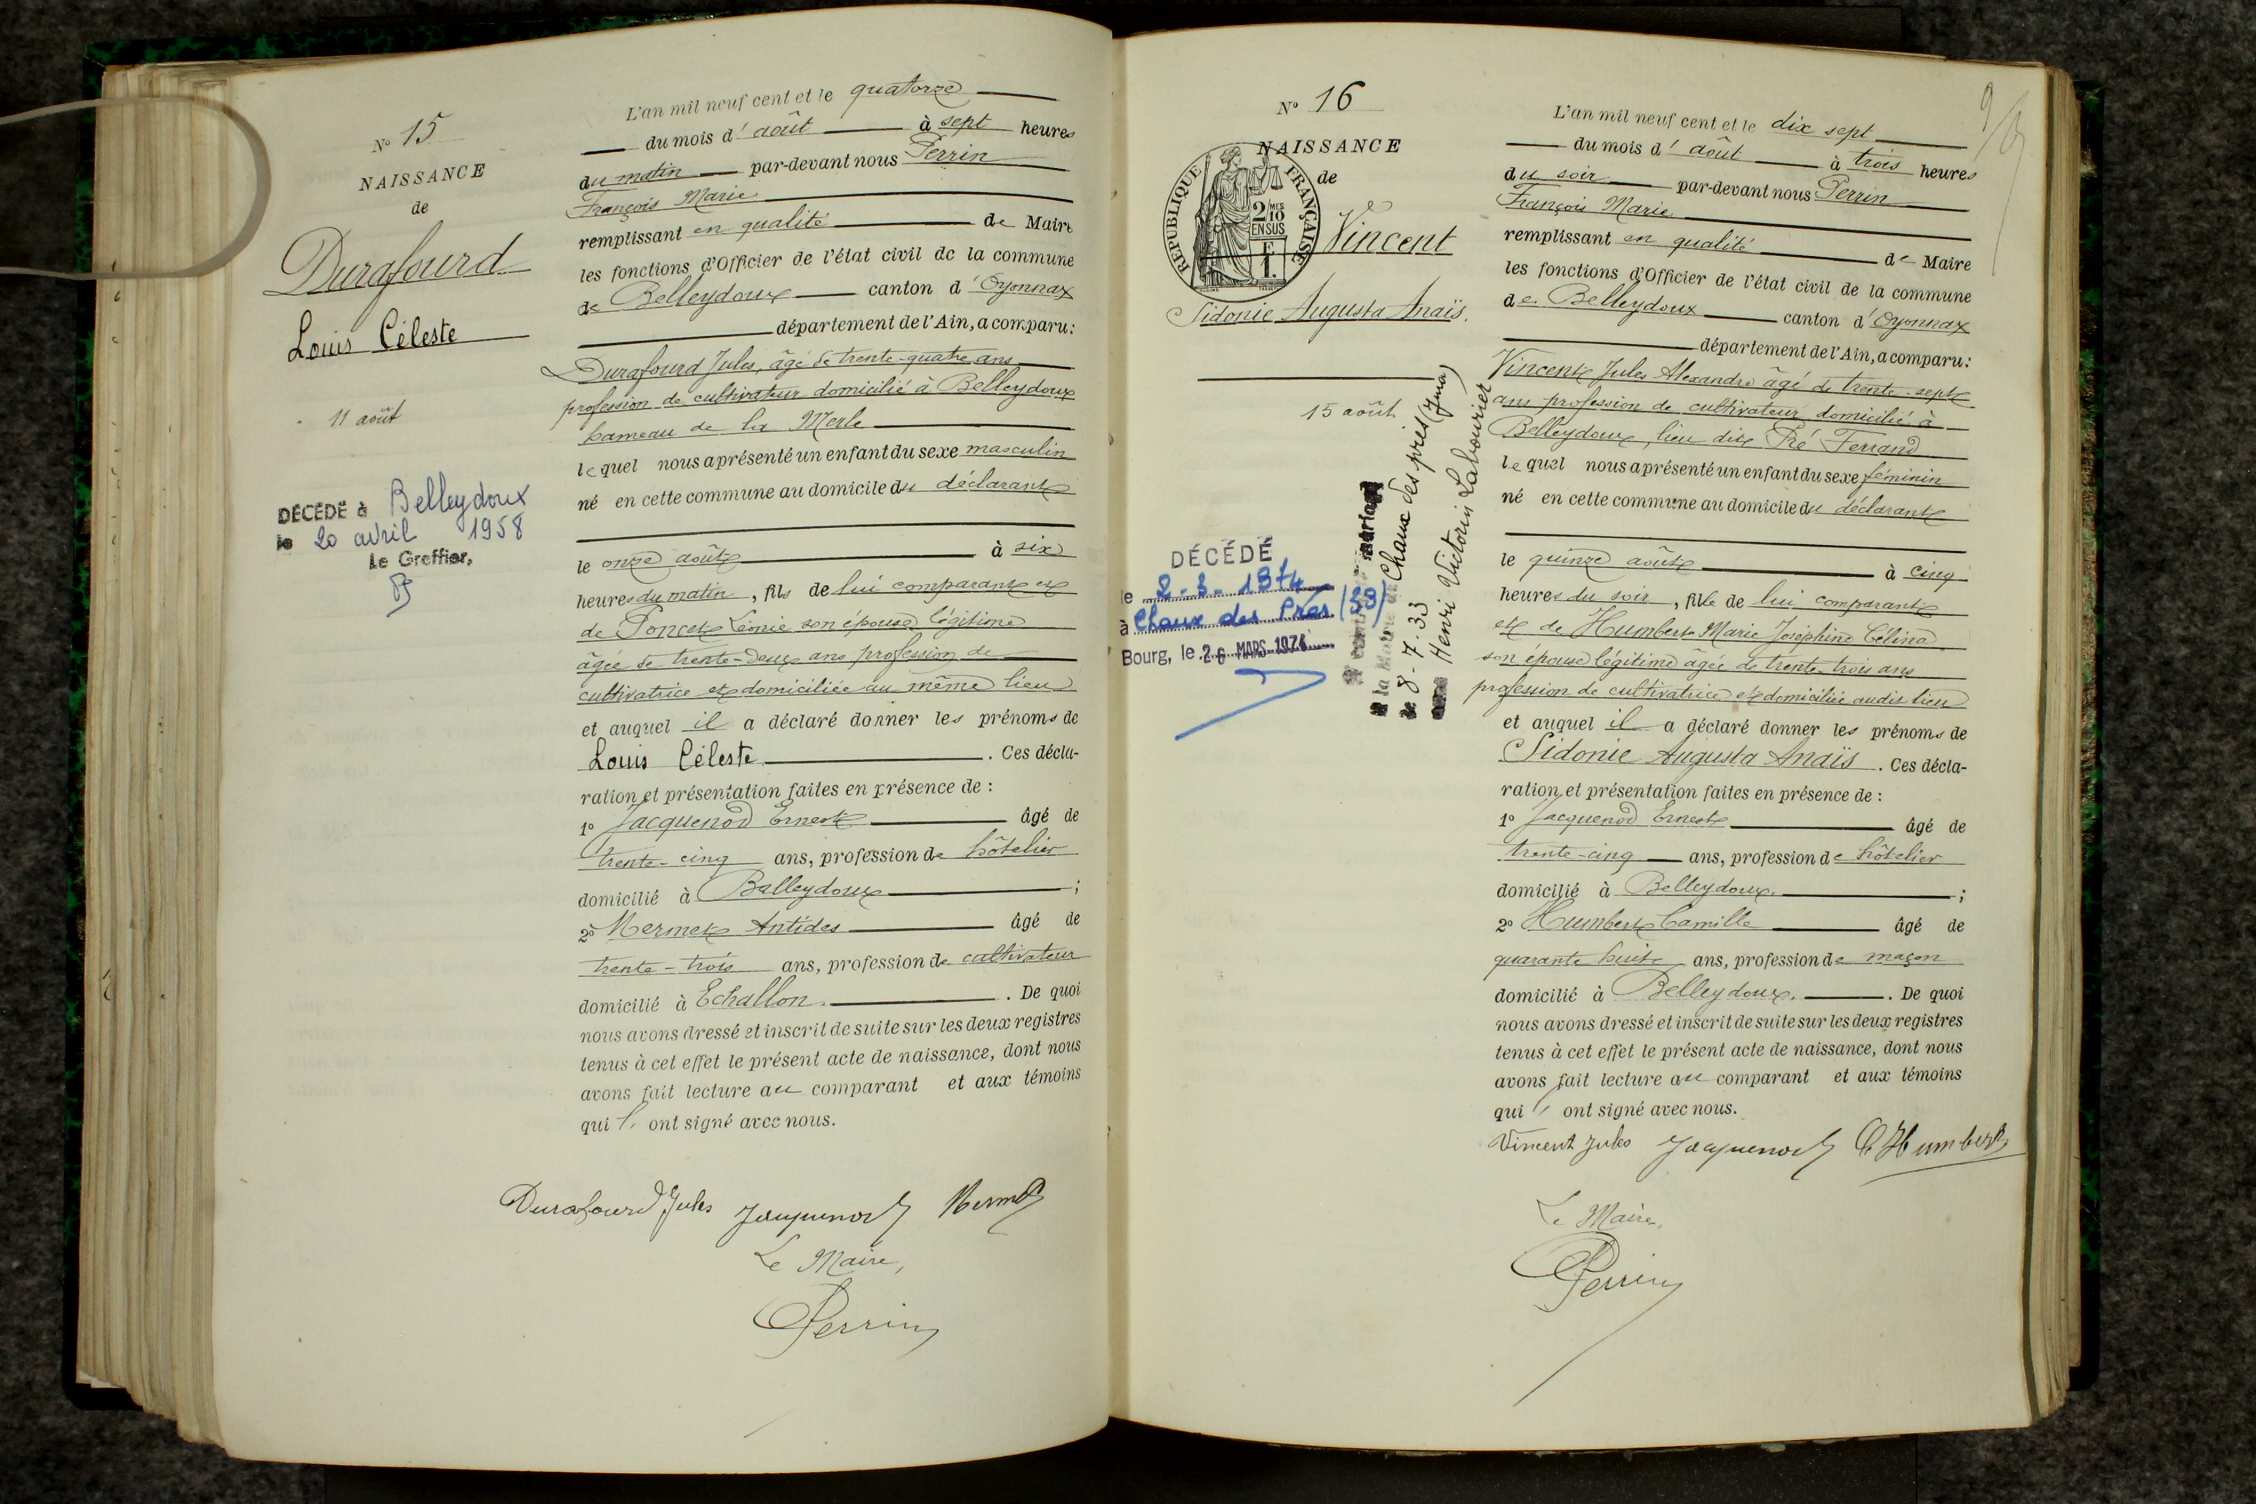 N° 15
NAISSANCE
de
Durafourd
Louis Céleste
11 août
DÉCÉDÉ à Belleydoux
le 20 avril 1958
Le Greffier,
L'an mil neuf cent et le quatorze
du mois d'août à sept heures
du matin par-devant nous Perrin
François Marie
remplissant en qualité de Maire
les fonctions d'Officier de l'état civil de la commune
de Belleydoux canton d'Oyonnax
département de l'Ain, a comparu :
Durafourd Jules, âgé de trente-quatre ans
profession de cultivateur domicilié à Belleydoux
hameau de la Merle
lequel nous a présenté un enfant du sexe masculin
né en cette commune au domicile du déclarant
le onze août à six
heures du matin, fils de lui comparant et
de Poncet Léonie son épouse légitime
âgée de trente-deux ans profession de
cultivatrice et domiciliée au même lieu
et auquel il a déclaré donner les prénoms de
Louis Céleste. Ces décla-
ration et présentation faites en présence de :
1° Jacquenod Ernest âgé de
trente-cinq ans, profession de hôtelier
domicilié à Belleydoux ;
2° Mermet Antides âgé de
trente-trois ans, profession de cultivateur
domicilié à Echallon. De quoi
nous avons dressé et inscrit de suite sur les deux registres
tenus à cet effet le présent acte de naissance, dont nous
avons fait lecture au comparant et aux témoins
qui l' ont signé avec nous.
Durafourd Jules Jacquenod Mermet
Le Maire,
Perrin
N° 16
NAISSANCE
de
RÉPUBLIQUE FRANÇAISE
2/10 MES
EN SUS
Vincent
Sidonie Augusta Anaïs.
15 août
DÉCÉDÉ
le 2-3-1974
à Chaux des Prés (39)
Bourg, le 26 MARS 1974
mariage
à la Mairie de Chaux des prés (Jura)
le 8-7-33
avec Henri Victorin Labourier
L'an mil neuf cent et le dix sept
du mois d'août à trois heures
du soir par-devant nous Perrin
François Marie
remplissant en qualité de Maire
les fonctions d'Officier de l'état civil de la commune
de Belleydoux canton d'Oyonnax
département de l'Ain, a comparu :
Vincent Jules Alexandre âgé de trente-sept
ans profession de cultivateur domicilié à
Belleydoux, lieu dit Pré Ferrand
lequel nous a présenté un enfant du sexe féminin
né en cette commune au domicile du déclarant
le quinze août à cinq
heures du soir, fille de lui comparant
et de Humbert Marie Joséphine Célina
son épouse légitime âgée de trente-trois ans
profession de cultivatrice et domiciliée audit lieu
et auquel il a déclaré donner les prénoms de
Sidonie Augusta Anaïs. Ces décla-
ration et présentation faites en présence de :
1° Jacquenod Ernest âgé de
trente-cinq ans, profession de hôtelier
domicilié à Belleydoux. ;
2° Humbert Camille âgé de
quarante huit ans, profession de maçon
domicilié à Belleydoux. De quoi
nous avons dressé et inscrit de suite sur les deux registres
tenus à cet effet le présent acte de naissance, dont nous
avons fait lecture au comparant et aux témoins
qui l' ont signé avec nous.
Vincent Jules Jacquenod C Humbert
Le Maire,
Perrin